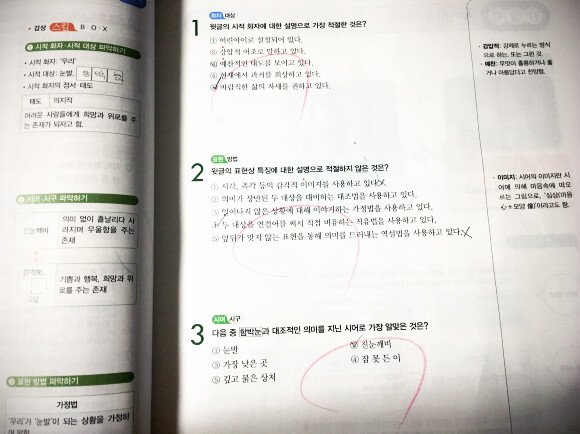 감상 스킬 B·O·X
1 시적 화자·시적 대상 파악하기
• 시적 화자: '우리'
• 시적 대상: 눈발,
• 시적 화자의 정서·태도
태도 의지적
어려운 사람들에게 희망과 위로를 주
는 존재가 되자고 함.
2 시어·시구 파악하기
진눈깨비
의미 없이 흩날리다 사
라지며 우울함을 주는
존재
함박눈,
기쁨과 행복, 희망과 위
로를 주는 존재
3 표현 방법 파악하기
가정법
'우리'가 '눈발'이 되는 상황을 가정하
1 화자 대상
윗글의 시적 화자에 대한 설명으로 가장 적절한 것은?
① 어린아이로 설정되어 있다.
② 강압적 어조로 말하고 있다.
③ 예찬적인 태도를 보이고 있다.
④ 현재에서 과거를 회상하고 있다.
⑤ 바람직한 삶의 자세를 권하고 있다.
2 표현 방법
윗글의 표현상 특징에 대한 설명으로 적절하지 않은 것은?
① 시각, 촉각 등의 감각적 이미지를 사용하고 있다.
② 의미가 상반된 두 대상을 대비하는 대조법을 사용하고 있다.
③ 일어나지 않은 상황에 대해 이야기하는 가정법을 사용하고 있다.
④ 두 대상을 연결어를 써서 직접 비유하는 직유법을 사용하고 있다.
⑤ 앞뒤가 맞지 않는 표현을 통해 의미를 드러내는 역설법을 사용하고 있다.
3 시어 시구
다음 중 함박눈과 대조적인 의미를 지닌 시어로 가장 알맞은 것은?
① 눈발 ② 진눈깨비
③ 가장 낮은 곳 ④ 잠 못 든 이
⑤ 깊고 붉은 상처
• 강압적: 강제로 누르는 방식
으로 하는. 또는 그런 것.
• 예찬: 무엇이 훌륭하거나 좋
거나 아름답다고 찬양함.
• 이미지: 시어의 이미지란 시
어에 의해 마음속에 떠오
르는 그림으로, '심상(마음
心+모양 像)'이라고도 함.